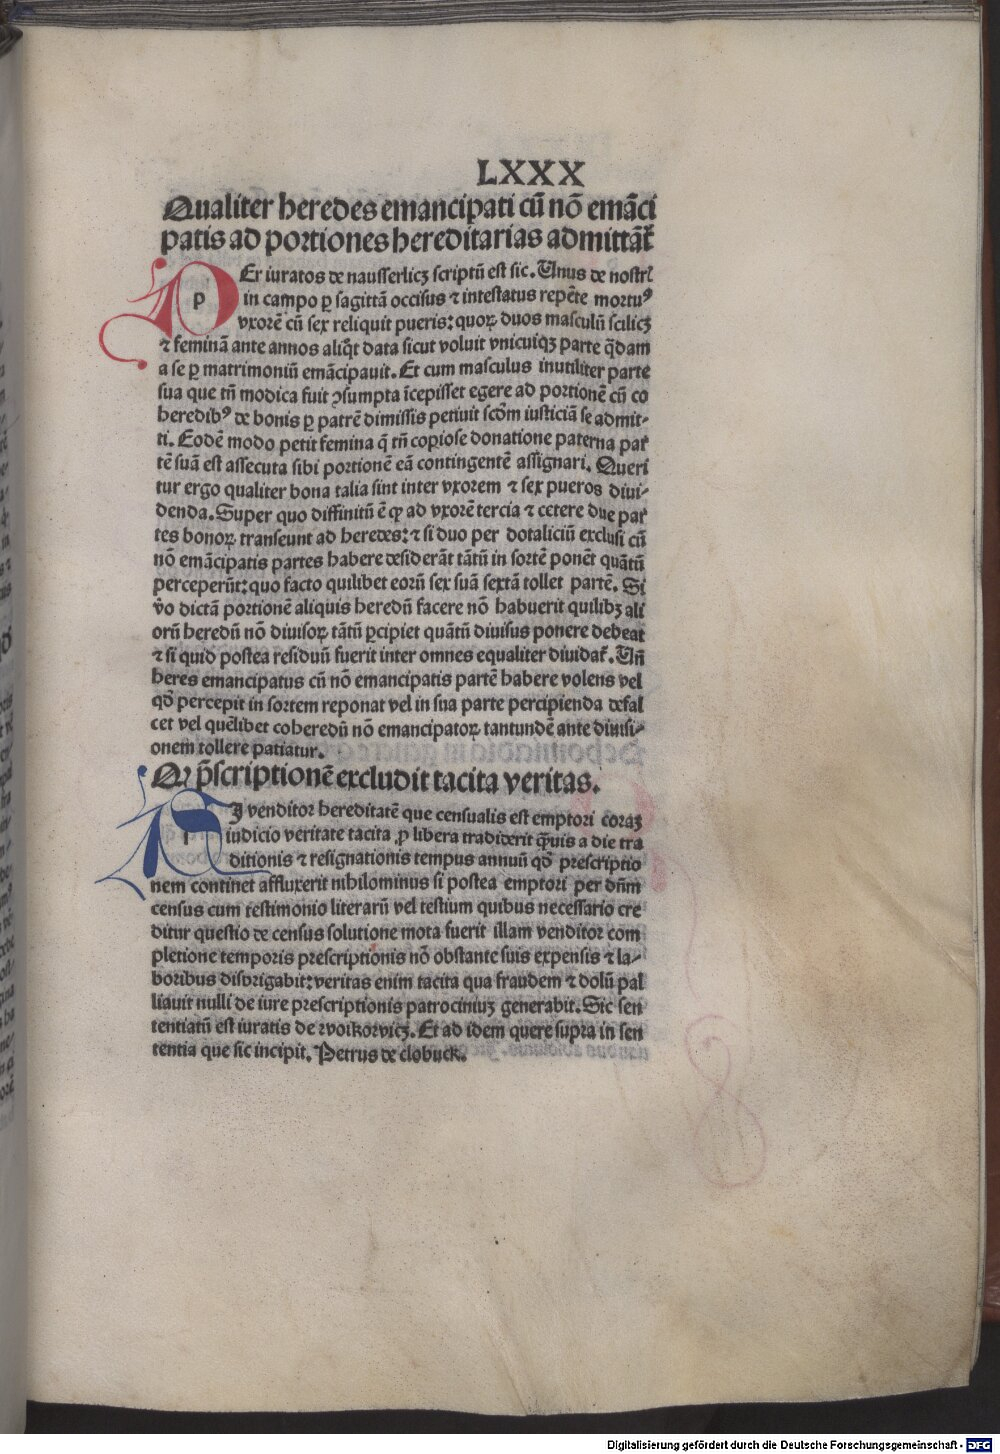 LXXX
Qualiter heredes emancipati cū nō emāci
patis ad portiones hereditarias admittāt̄
p
PEr iuratos de nausserlicz scriptū est sic. Unus de nostrꝭ
in campo ꝑ sagittā occisus ⁊ intestatus repēte mortuꝰ
vxorē cū sex reliquit pueris: quoꝝ duos masculū scilicꝫ
⁊ feminā ante annos aliq̄t data sicut voluit vnicuiqꝫ parte q̄dam
a se ꝑ matrimoniū emācipauit. Et cum masculus inutiliter parte
sua que tn̄ modica fuit ꝯsumpta īcepisset egere ad portionē cū co
heredibꝰ de bonis ꝑ patrē dimissis petiuit scd̄m iusticiā se admit⸗
ti. Eodē modo petit femina q̄ tn̄ copiose donatione paterna par̄
tē suā est assecuta sibi portionē eā contingentē assignari. Queri
tur ergo qualiter bona talia sint inter vxorem ⁊ sex pueros diui⸗
denda. Super quo diffinitū ē ꝙ ad vxorē tercia ⁊ cetere due par̄
tes bonoꝝ transeunt ad heredes: ⁊ si duo per dotaliciū exclusi cū
nō emācipatis partes habere desiderāt tātū in sortē ponēt quātū
perceperūt: quo facto quilibet eorū sex suā sextā tollet partē. Si
v̄o dictā portionē aliquis heredū facere nō habuerit quilibꝫ ali
orū heredū nō diuisoꝝ tātū ꝑcipiet quātū diuisus ponere debeat
⁊ si quid postea residuū fuerit inter omnes equaliter diuidat̄. Un̄
heres emancipatus cū nō emancipatis partē habere volens vel
qd̄ percepit in sortem reponat vel in sua parte percipienda defal
cet vel quēlibet coheredū nō emancipatoꝝ tantundē ante diuisi⸗
onem tollere patiatur.
Ꝙ p̄scriptionē excludit tacita veritas.
SJ venditor hereditatē que censualis est emptori coraꝫ
iudicio veritate tacita ꝓ libera tradiderit q̄uis a die tra
ditionis ⁊ resignationis tempus annuū qd̄ prescriptio
nem continet affluxerit nihilominus si postea emptori per dn̄m
census cum testimonio literarū vel testium quibus necessario cre
ditur questio de census solutione mota fuerit illam venditor com
pletione temporis prescriptionis nō obstante suis expensis ⁊ la⸗
boribus disbrigabit: veritas enim tacita qua fraudem ⁊ dolū pal
liauit nulli de iure prescriptionis patrociniuꝫ generabit. Sic sen
tentiatū est iuratis de rvoikorvicꝫ. Et ad idem quere supra in sen
tentia que sic incipit. Petrus de clobuck.
Digitalisierung gefördert durch die Deutsche Forschungsgemeinschaft - DFG